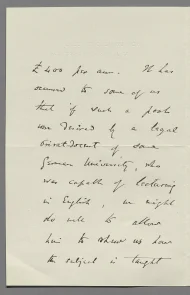 £400 per ann. It has
occurred to some of us
that if such a post
was desired by a legal
privat Docent of some
German University, who
was capable of lecturing
in English, we might
do well to allow
him to show us how
the subject is taught